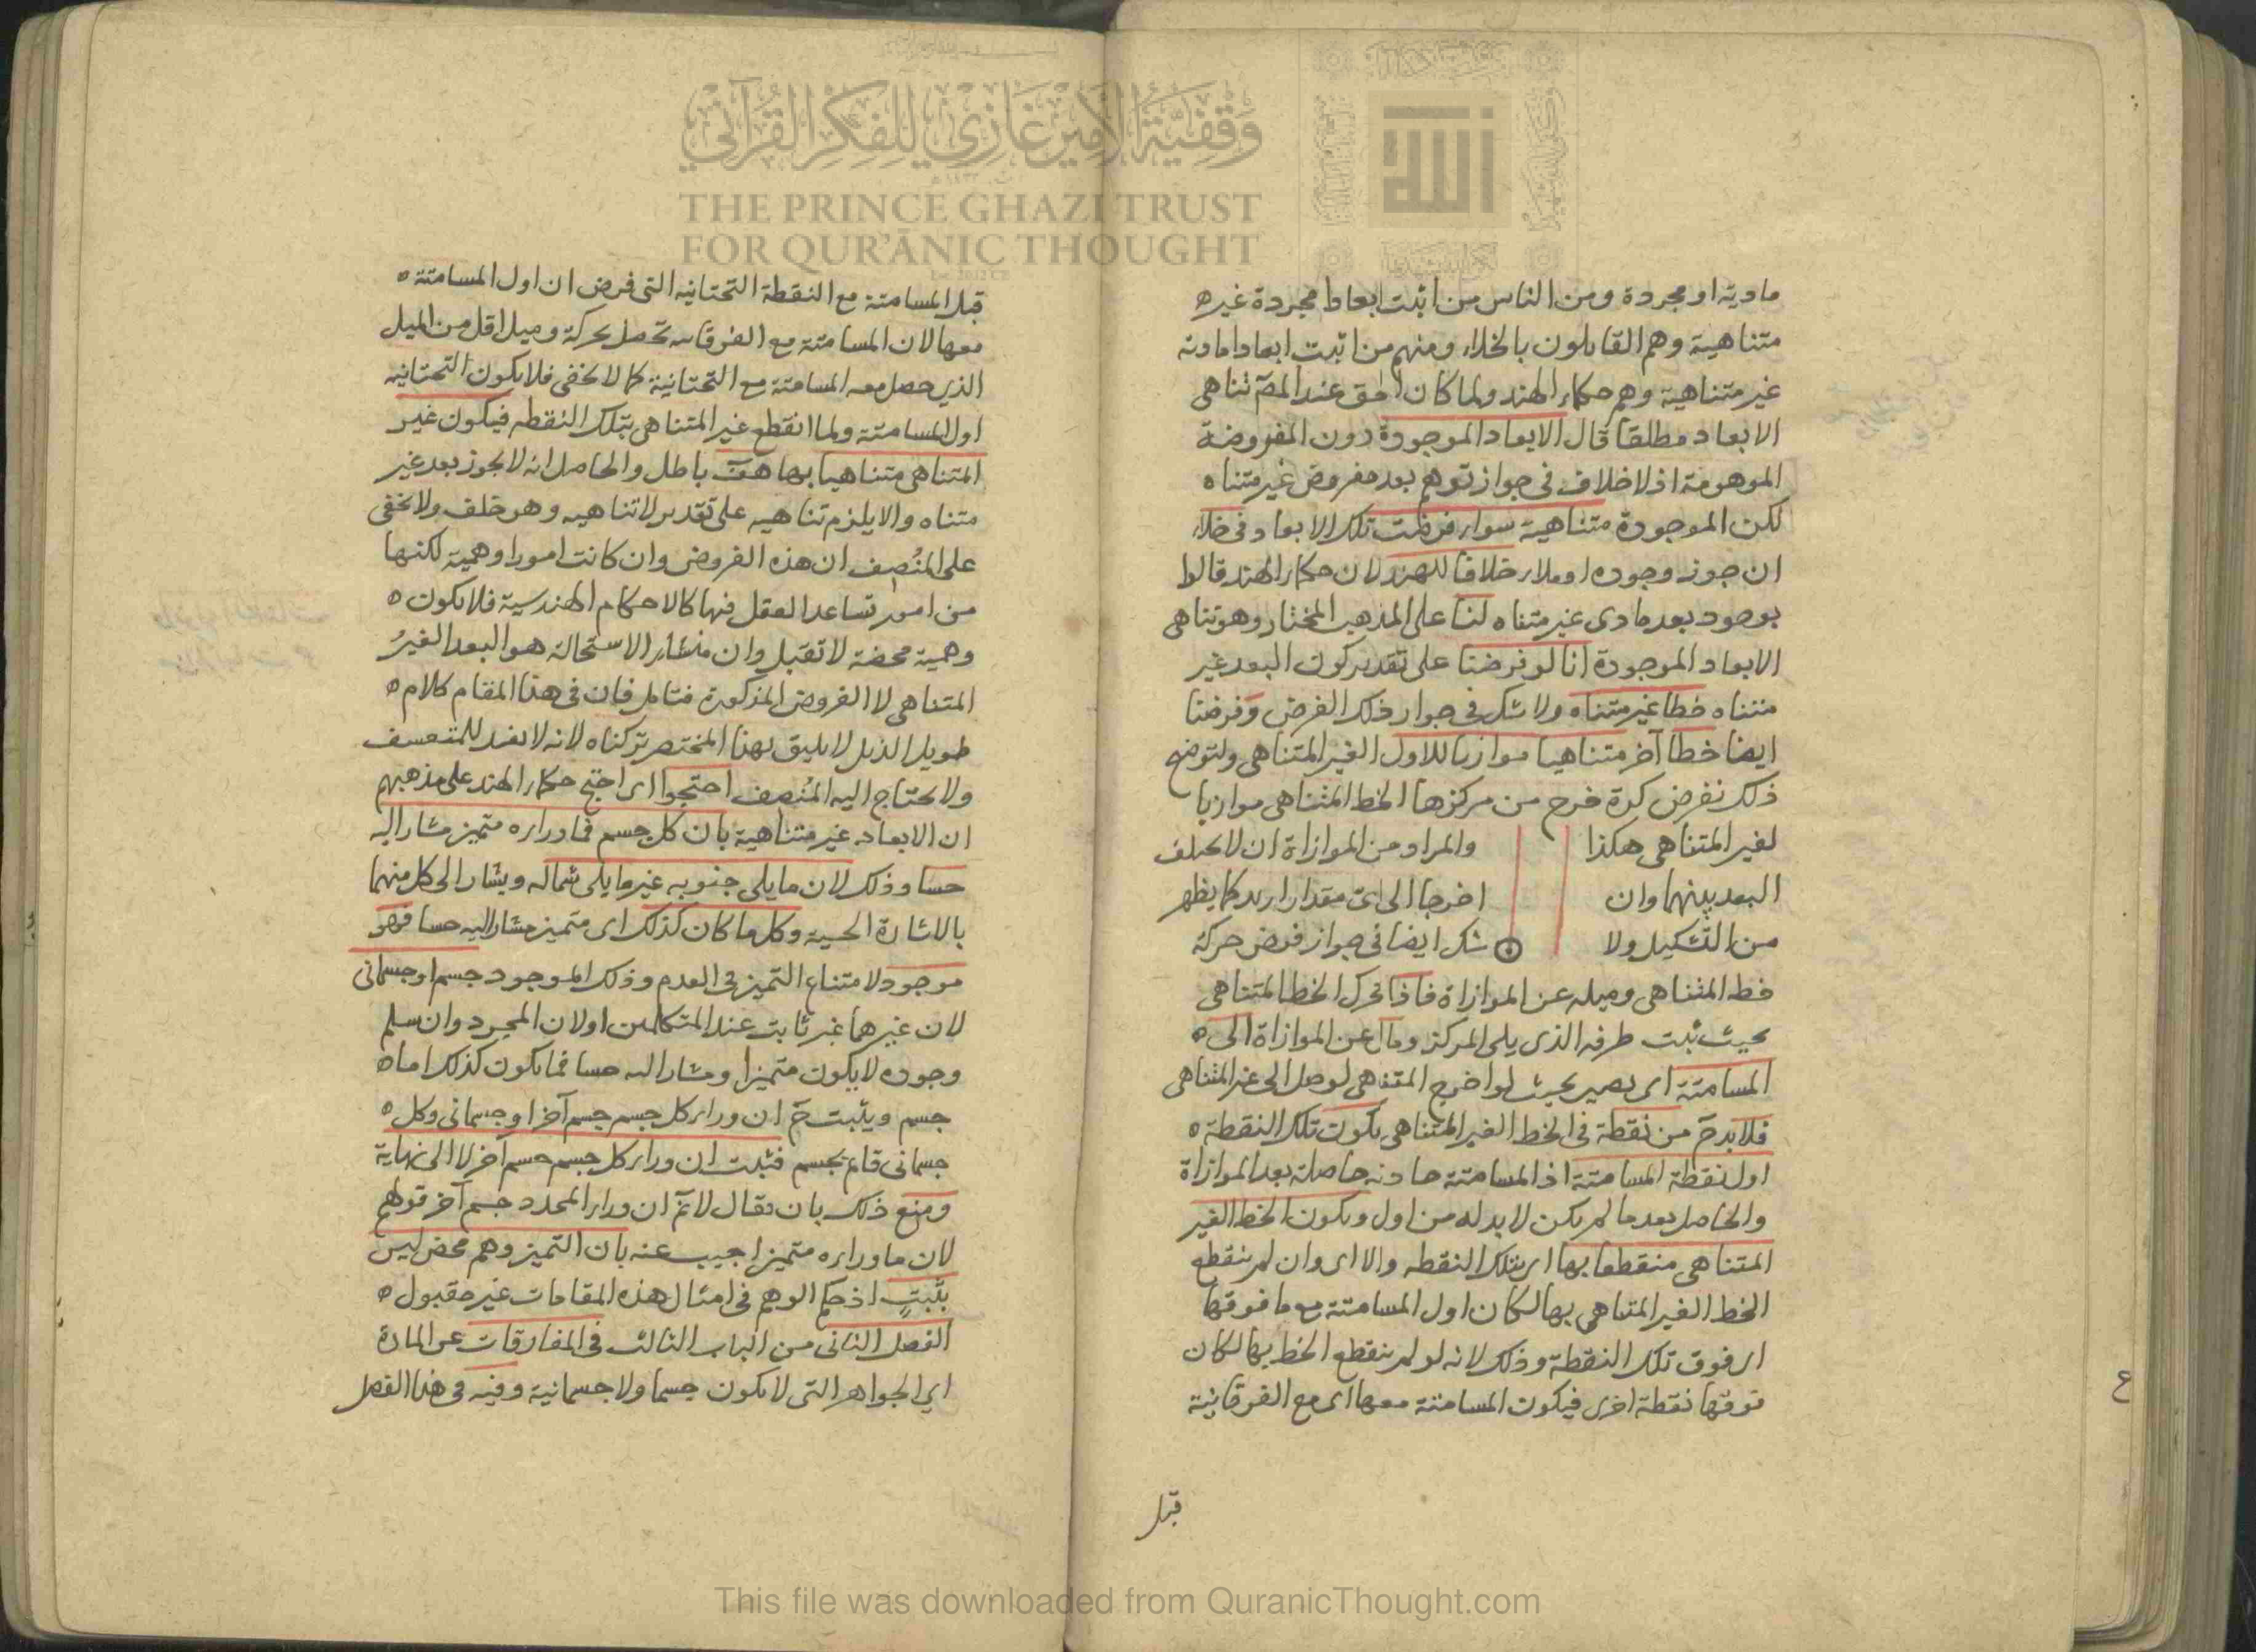 وقفية الأمير غازي للفكر القرآني
THE PRINCE GHAZI TRUST
FOR QUR'ĀNIC THOUGHT
الله
مادية او مجردة ومن الناس من اثبت ابعادا مجردة غير
متناهية وهم القايلون بالخلاء ومنهم من اثبت ابعادا مادية
غير متناهية وهم حكماء الهند ولما كان الحق عند المصَ تناهى
الابعاد مطلقا قال الابعاد الموجودة دون المفروضة
الموهومة اذ لا خلاف فى جواز توهم بعد مفروض غير متناه
لكن الموجودة متناهية سواء فرضت تلك الابعاد فى خلاء
ان جوز وجوده او ملاء خلافا للهند لان حكماء الهند قالوا
بوجود بعد مادى غير متناه لنا على المذهب المختار وهو تناهى
الابعاد الموجودة انا لو فرضنا على تقدير كون البعد غير
متناه خطا غير متناه ولا شك فى جواز ذلك الفرض وفرضنا
ايضا خطا آخر متناهيا موازيا للاول الغير المتناهى ولتوضيح
ذلك نفرض كرة خرج من مركزها الخط المتناهى موازيا
لغير المتناهى هكذا والمراد من الموازاة ان لا يختلف
البعد بينهما وان اخرجا الى اىّ مقدار اريد كما يظهر
من التشكيل ولا شك ايضا فى جواز فرض حركة
خط المتناهى وميله عن الموازاة فاذا تحرك الخط المتناهى
بحيث ثبت طرفه الذى يلى المركز ومال عن الموازاة الى
المسامتة اى يصير بحيث لو اخرج المتناهى لوصل الى غير المتناهى
فلا بد حَ من نقطة فى الخط الغير المتناهى يكون تلك النقطة
اول نقطة المسامتة اذ المسامتة حادثة حاصلة بعد الموازاة
والحاصل بعد ما لم يكن لا بد له من اول ويكون الخط الغير
المتناهى منقطعا بها اى بتلك النقطه والا اى وان لم ينقطع
الخط الغير المتناهى بها لكان اول المسامتة مع ما فوقها
اى فوق تلك النقطة وذلك لانه لو لم ينقطع الخط بها لكان
فوقها نقطة اخرى فيكون المسامتة معها اى مع الفوقانية
قبل
قبل المسامتة مع النقطة التحتانيه التى فرض ان اول المسامتة
معها لان المسامتة مع الفوقانيه تحصل بحركة وميل اقل من الميل
الذى حصل معه المسامتة مع التحتانية كما لا يخفى فلا يكون التحتانيه
اول المسامتة ولما انقطع غير المتناهى بتلك النقطه فيكون غير
المتناهى متناهيا بها هف باطل والحاصل انه لا يجوز بعد غير
متناه والا يلزم تناهيه على تقدير لاتناهيه وهو خلف ولا يخفى
على المُنْصِف ان هذه الفروض وان كانت امورا وهمية لكنها
من امور تساعد العقل فيها كالاحكام الهندسية فلا يكون
وهمية محضة لا تقبل وان منشاء الاستحالة هو البعد الغيرُ
المتناهى لا الفروض المذكورة فتامل فان فى هذا المقام كلام
طويل الذيل لا يليق بهذا المختصر تركناه لانه لا يفيد للمتعسف
ولا يحتاج اليه المُنصف احتجوا اى احتج حكماء الهند على مذهبهم
ان الابعاد غير متناهية بان كل جسم فما وراءه متميز مشار اليه
حسا وذلك لان ما يلى جنوبه غير ما يلى شماله ويشار الى كل منهما
بالاشارة الحسية وكل ما كان كذلك اى متميز مشار اليه حسا فهو
موجود لامتناع التميز فى العدم وذلك الموجود جسم او جسمانى
لان غيرهما غير ثابت عند المتكلمين او لان المجرد وان سلم
وجوده لا يكون متميزا ومشارا اليه حسا فما يكون كذلك اما
جسم ويثبت حَ ان وراء كل جسم جسم آخر او جسمانى وكل
جسمانى قايم بجسم فثبت ان وراء كل جسم جسم آخر لا الى نهاية
ومنع ذلك بان يقال لانمَ ان وراء المحدد جسم آخر قولهم
لان ما وراءه متميز اجيب عنه بان التميز وهم محض ليس
بثَبتٍ اذ حكم الوهم فى امثال هذه المقامات غير مقبول
الفصل الثانى من الباب الثالث فى المفارقات عن المادة
اى الجواهر التى لا يكون جسما ولا جسمانية وفيه فى هذا الفصل
This file was downloaded from QuranicThought.com